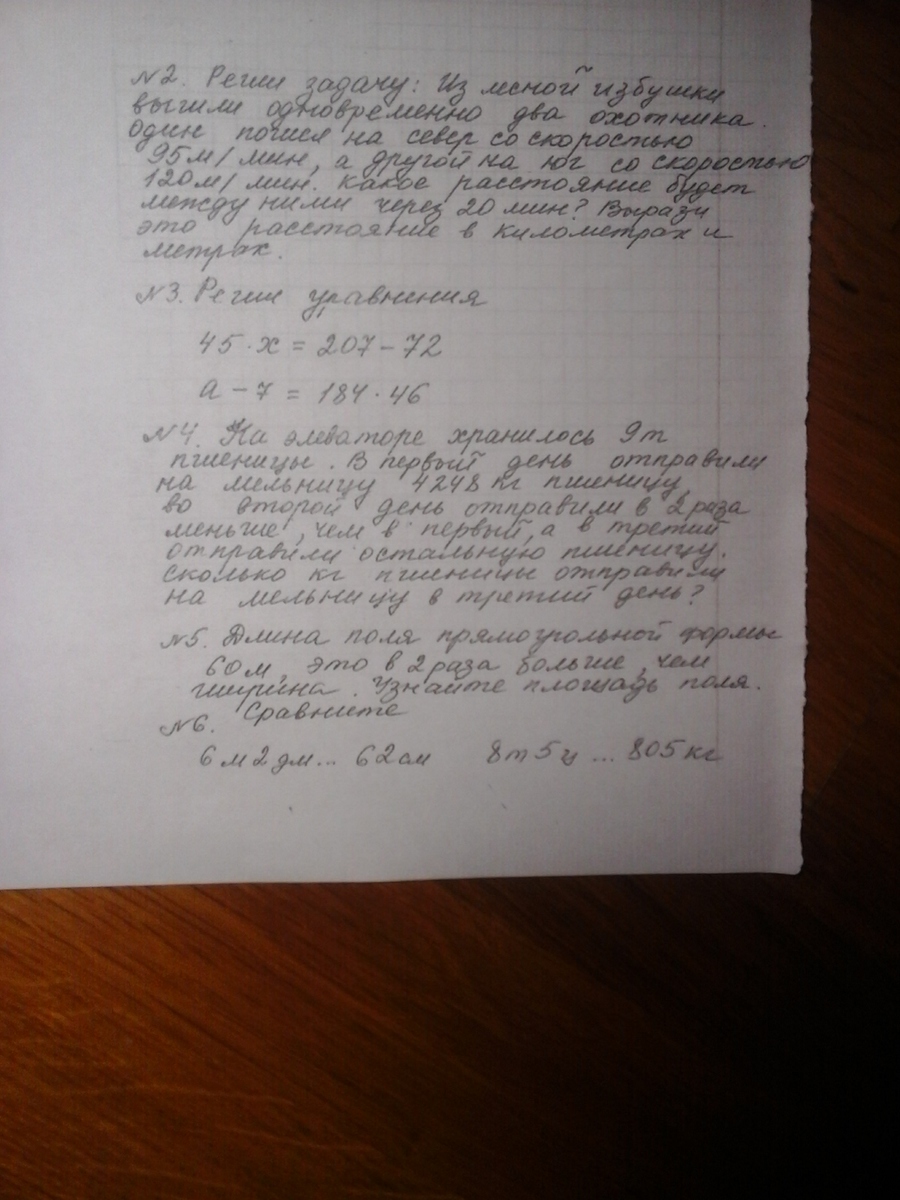 №2. Реши задачу: Из лесной избушки
вышли одновременно два охотника.
Один пошел на север со скоростью
95м/мин, а другой на юг со скоростью
120м/мин. Какое расстояние будет
между ними через 20 мин? Вырази
это расстояние в километрах и
метрах.
№3. Реши уравнения
45·x = 207-72
а-7 = 184·46
№4. На элеваторе хранилось 9т
пшеницы. В первый день отправили
на мельницу 4248 кг пшеницу,
во второй день отправили в 2 раза
меньше, чем в первый, а в третий
отправили остальную пшеницу.
Сколько кг пшеницы отправили
на мельницу в третий день?
№5. Длина поля прямоугольной формы
60м, это в 2 раза больше, чем
ширина. Узнайте площадь поля.
№6. Сравните
6м2дм... 62см 8т5ц...805кг